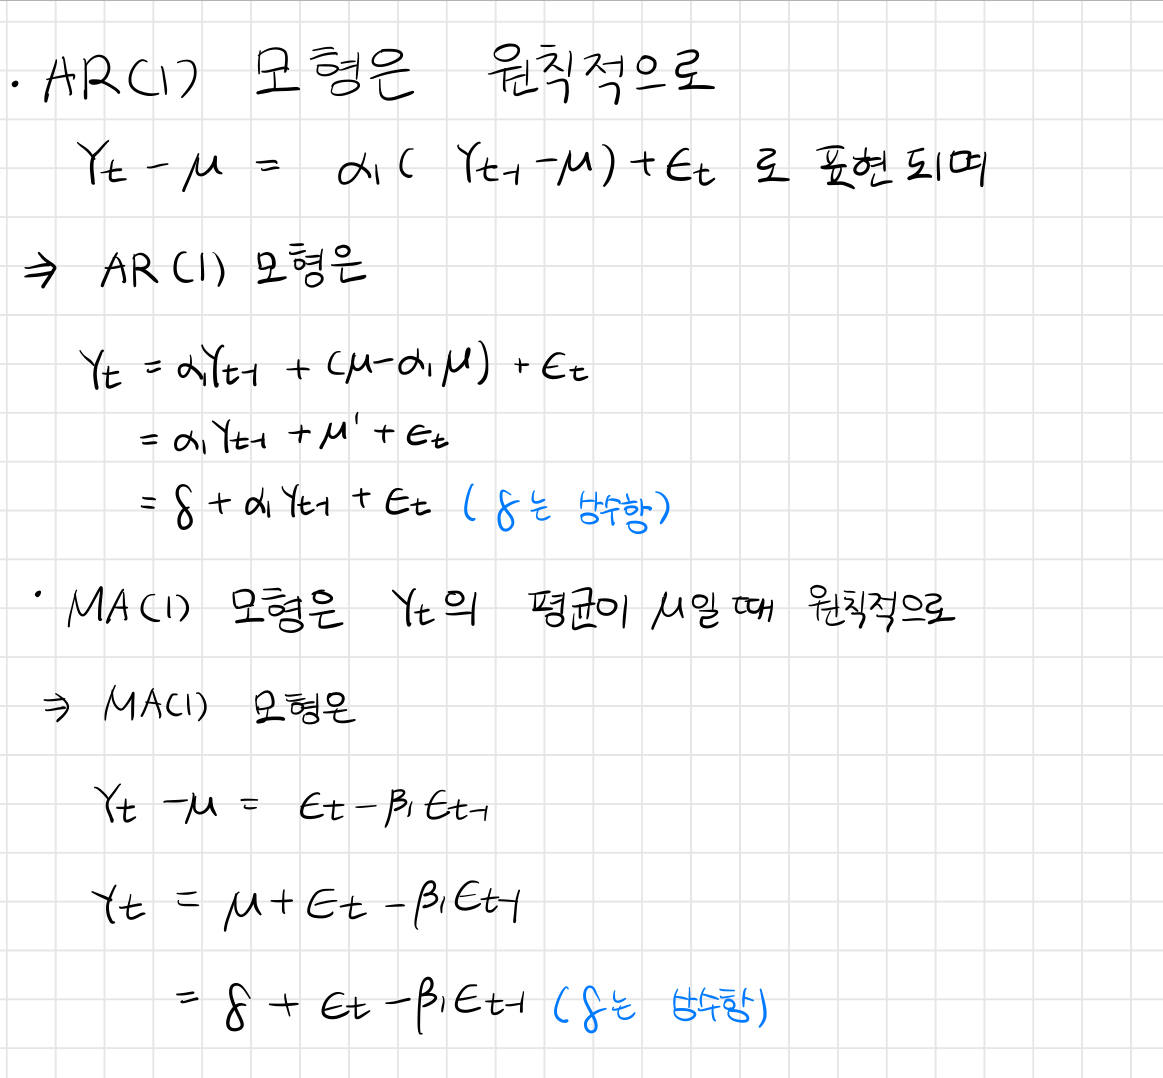 · AR(1) 모형은 원칙적으로
Yt - μ = α1( Yt-1 - μ) + ϵt 로 표현되며
⇒ AR(1) 모형은
Yt = α1Yt-1 + (μ-α1μ) + ϵt
= α1Yt-1 + μ' + ϵt
= δ + α1Yt-1 + ϵt (δ는 상수항)
· MA(1) 모형은 Yt의 평균이 μ일 때 원칙적으로
⇒ MA(1) 모형은
Yt - μ = ϵt - β1ϵt-1
Yt = μ + ϵt - β1ϵt-1
= δ + ϵt - β1ϵt-1 (δ는 상수항)